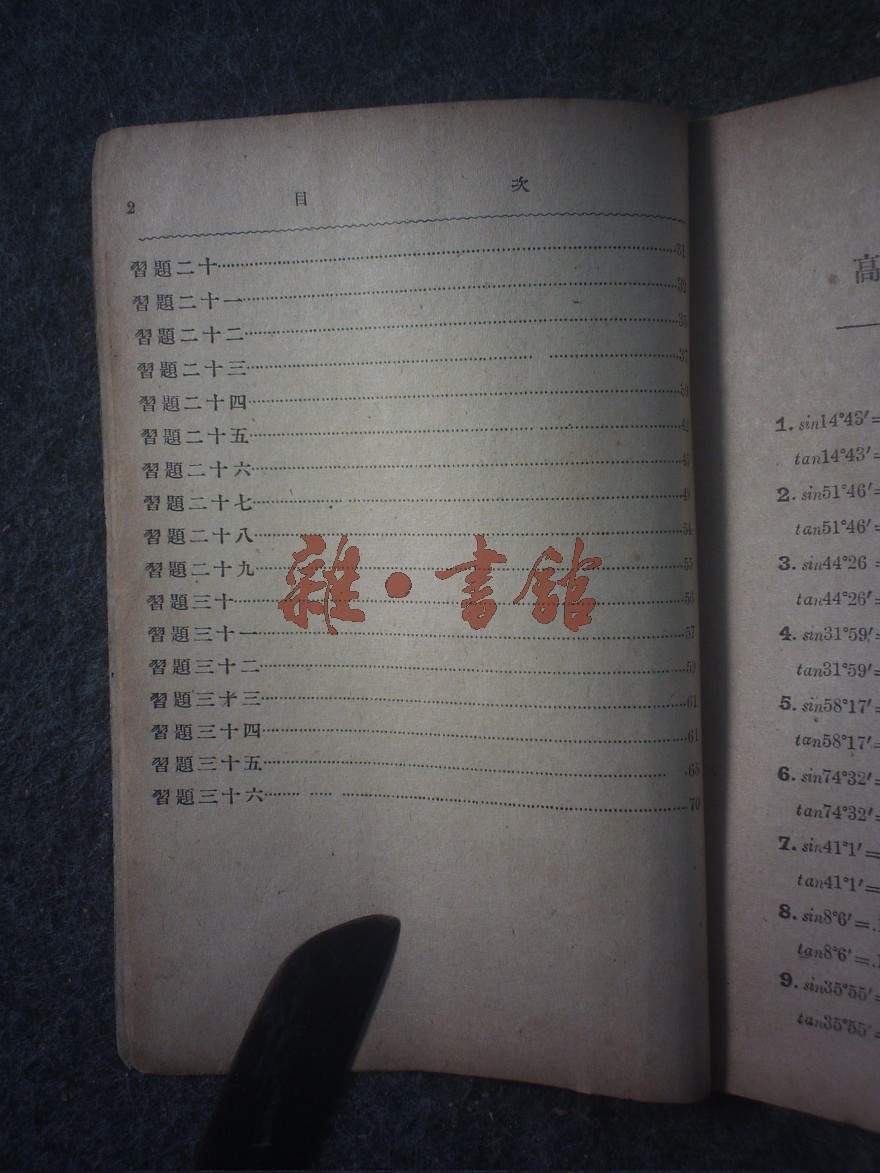 2 目 次
習題二十 31
習題二十一 32
習題二十二
習題二十三 37
習題二十四 39
習題二十五 42
習題二十六
習題二十七
習題二十八 54
習題二十九 55
習題三十 56
習題三十一 57
習題三十二 59
習題三十三 61
習題三十四 61
習題三十五 65
習題三十六 70
雜·書館
高
1. sin14°43′=
tan14°43′=
2. sin51°46′=
tan51°46′=
3. sin44°26 =
tan44°26′=
4. sin31°59′=
tan31°59′=
5. sin58°17′=
tan58°17′=
6. sin74°32′=
tan74°32′=
7. sin41°1′=
tan41°1′=
8. sin8°6′=.
tan8°6′=.
9. sin35°55′=
tan35°55′=